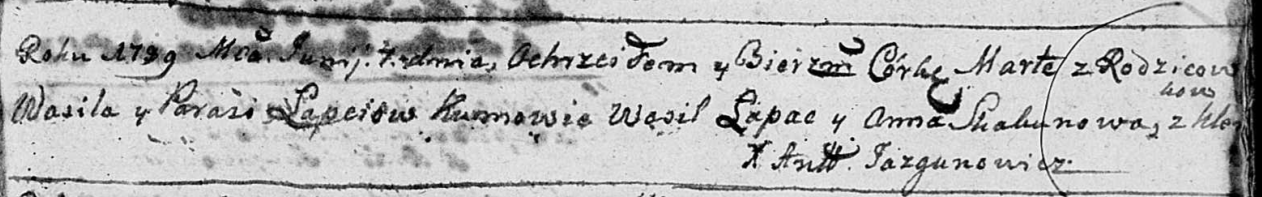 Roku 1789 Mca Junij. 7. dnia, Ochrzciłem y Bierzm Córkę Martę z Rodzicow
Wasila y Parasi Łapciow Kumowie Wasil Łapac y Anna Skakunowa, z
kow
X Antt. Jazgunowicz.